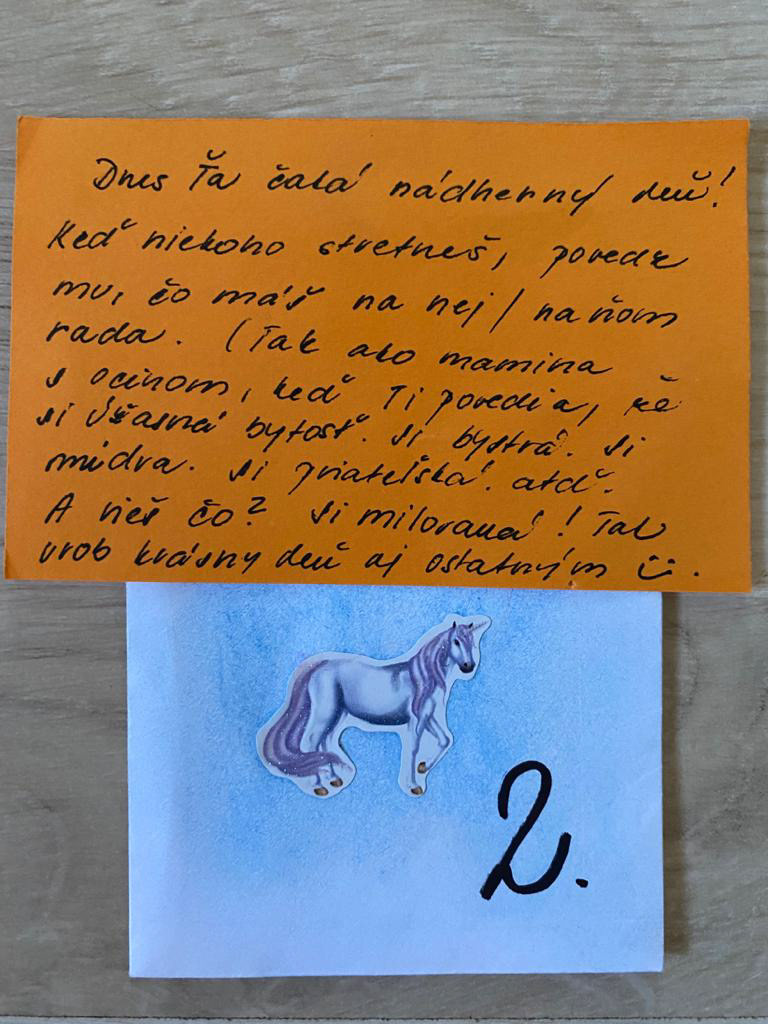 Dnes Ťa čaká nádherný deň!
Keď niekoho stretneš, povedz
mu, čo máš na nej / na ňom
rada. (Tak ako mamina
s ocinom, keď Ti povedia, že
si úžasná bytosť. Si bystrá. Si
múdra. Si priateľská. atď.
A vieš čo? Si milovaná! Tak
urob krásny deň aj ostatným :).
2.